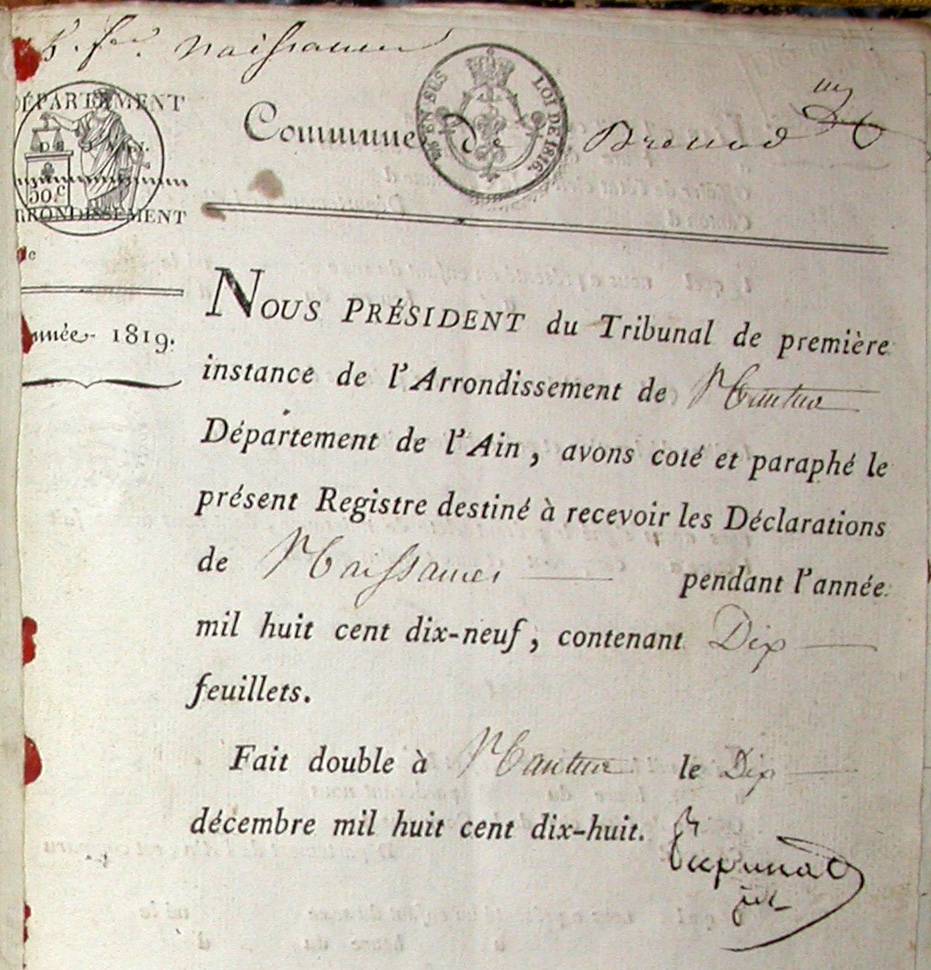 naissances
DÉPARTEMENT
EN SUS
LOI DE 1816.
Commune de Brenod
50c
ARRONDISSEMENT
Année 1819.
NOUS PRÉSIDENT du Tribunal de première
instance de l'Arrondissement de Nantua
Département de l'Ain, avons coté et paraphé le
présent Registre destiné à recevoir les Déclarations
de Naissances pendant l'année
mil huit cent dix-neuf, contenant Dix
feuillets.
Fait double à Nantua le Dix
décembre mil huit cent dix-huit.